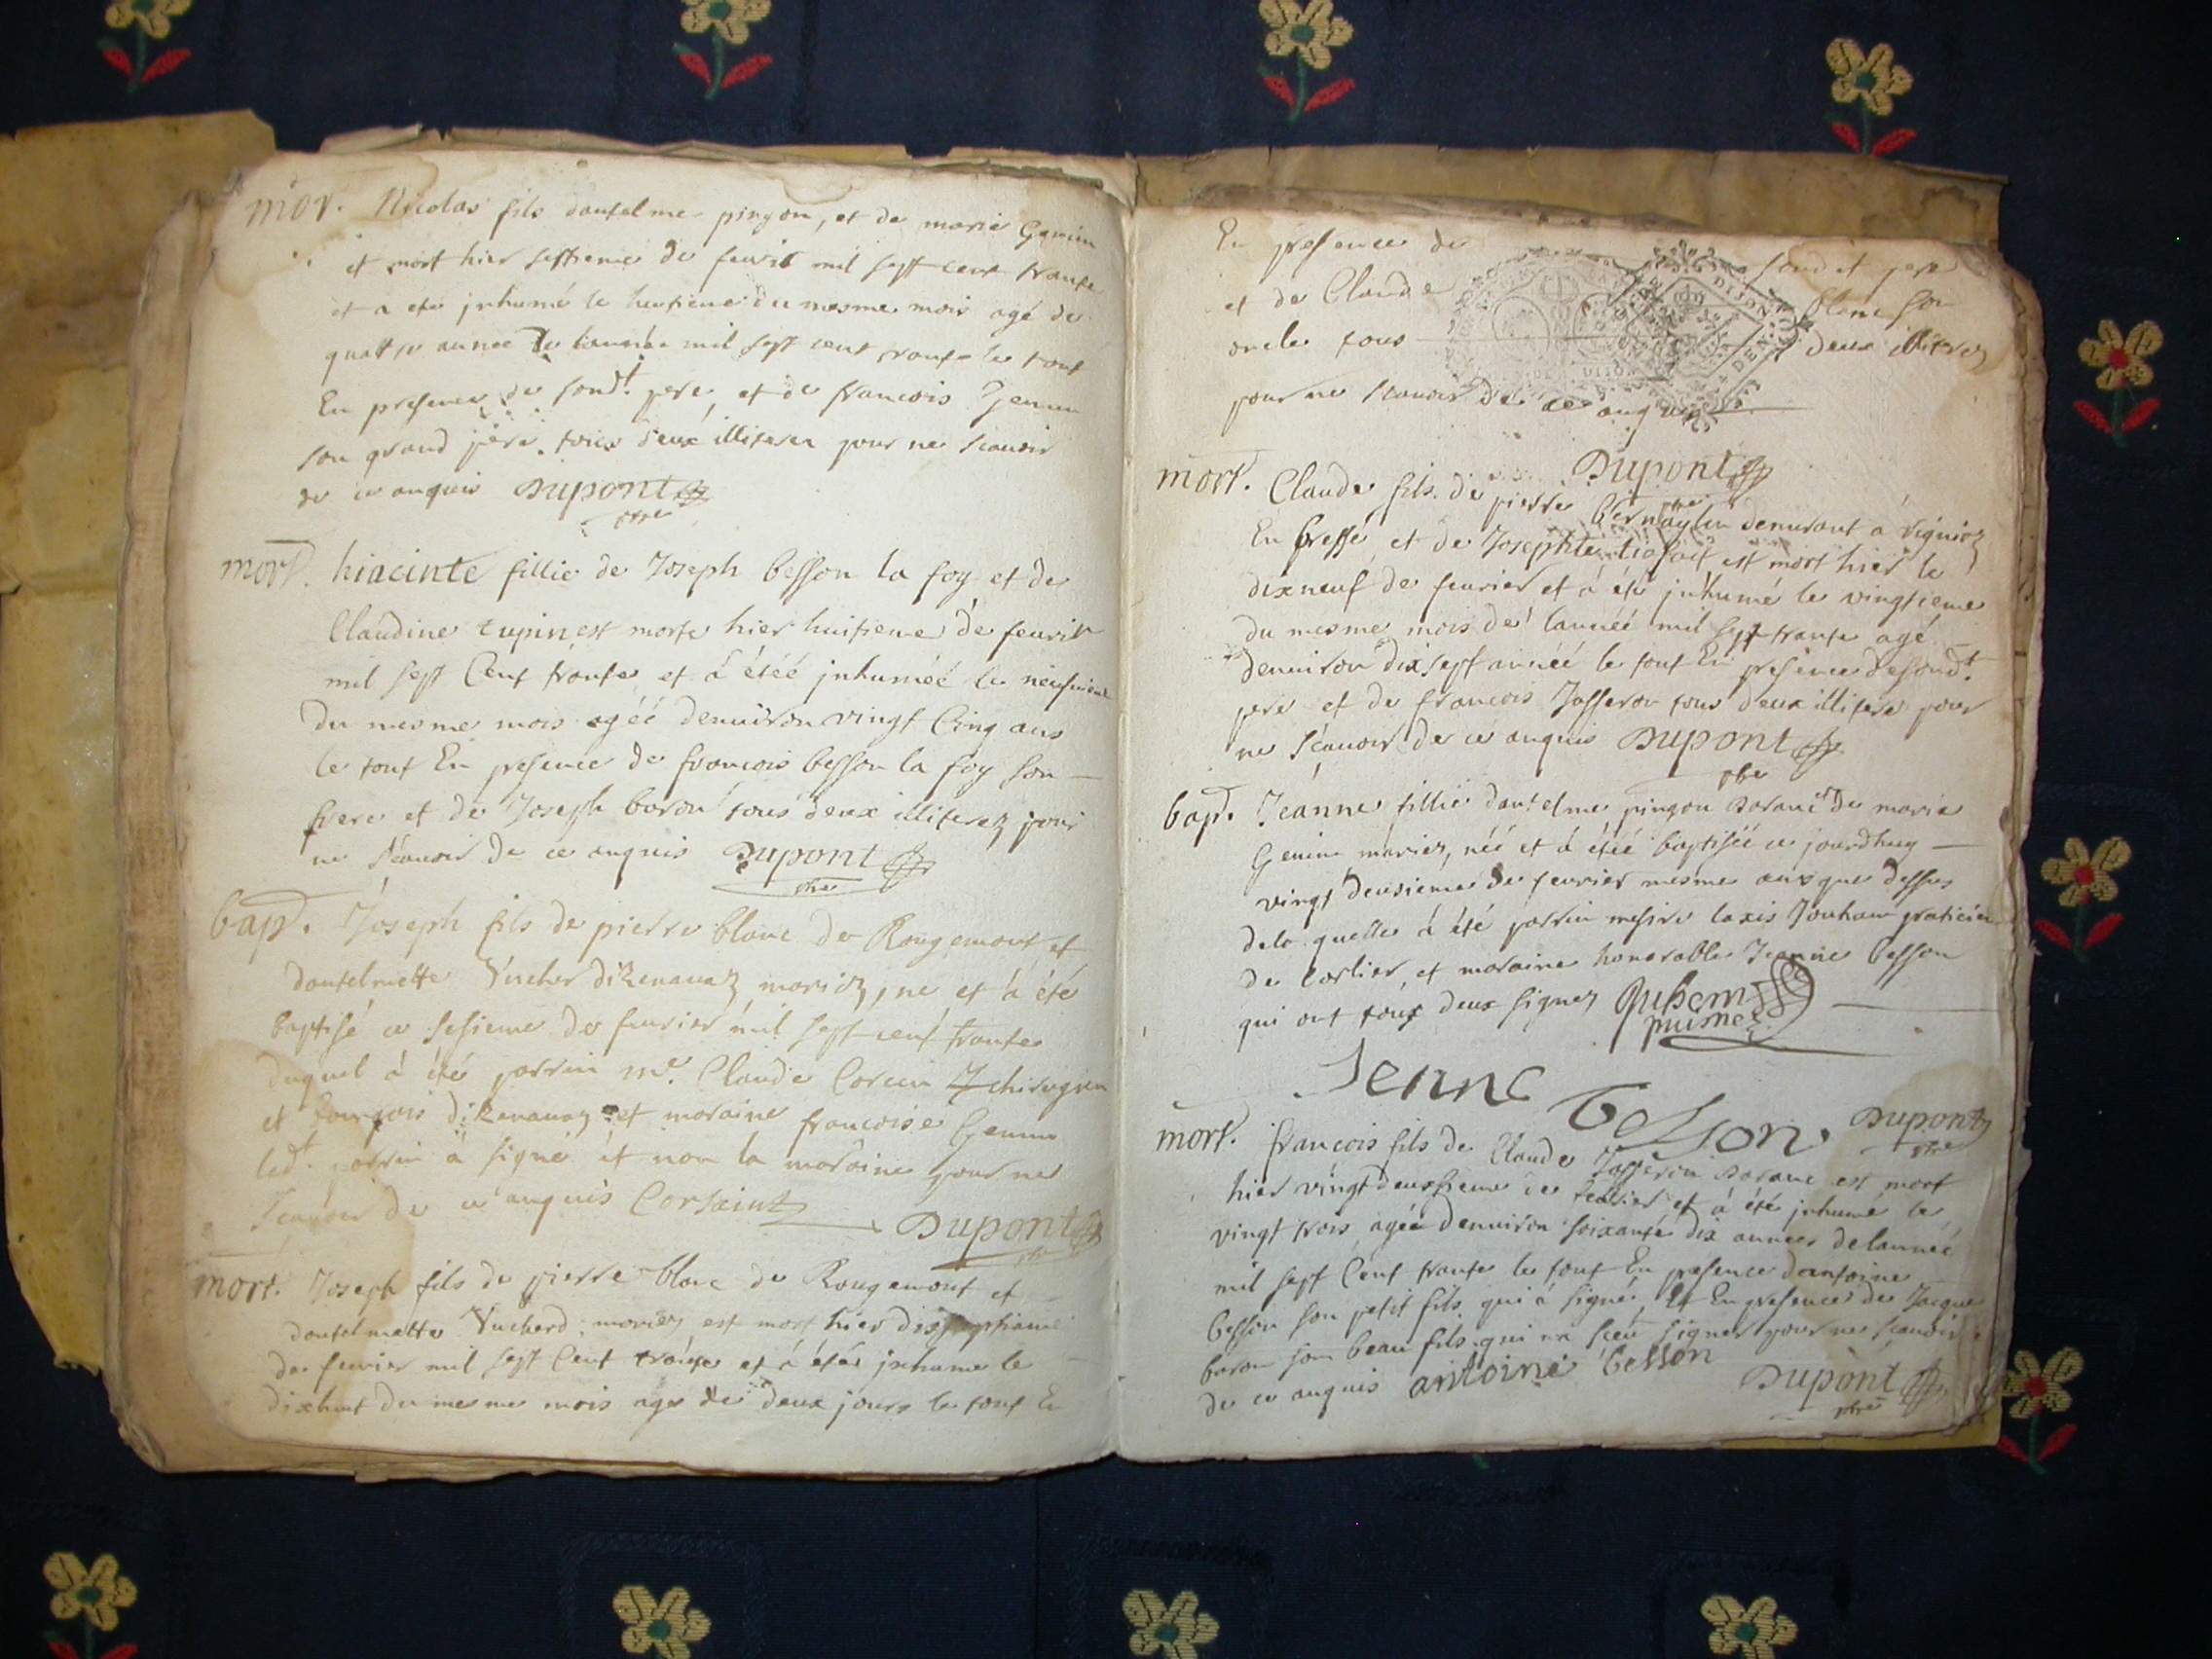 mor. Nicolas fils dantelme pingon, et de marie Genin
et mort hier settieme de feuvir mil sept cent trante
et a ete jnhumé le huitieme du mesme mois agé de
quattre année de lannée mil sept cent trante le tout
En presence de sondt. pere, et de francois Genin
son grand pere. tous deux illiteres pour ne scauoir
de ce anquis Dupont
ptre
mort. hiacinte fillie de Joseph besson la foy et de
Claudine tupin est morte hier huitieme de feuvir
mil sept Cent trante et à étéé jnhuméé le neufvieme
du mesme mois agéé denuiron vingt Cinq ans
le tout En presence de francois besson la foy son
frere et de Joseph baron tous deux illiterez pour
ne scauoir de ce anquis Dupont
ptre
bapt. Joseph fils de pierre blanc de Rougemont et
dantelmette Vucher diZenauaz mariez, ne et à été
baptisé ce sesieme de feurier mil sept cent trante
duquel à été parrin mr. Claude Chirugien
et bourgois diZenauaz et maraine francoise Genin
ledt. parrin à signé et non la maraine pour ne
scauoir de ce anquis Corsaint
Dupont
ptre
mort. Joseph fils de pierre blanc de Rougemont et
dantelmette Vucherd mariez est mort hier dixseptieme
de feurier mil sept Cent trante et à étéé jnhume le
dixhuit du mesme mois age de deux jours le tout En
En presence de sondt pere
et de Claude blanc son
oncle tous deux illiterez
pour ne scauoir de ce anquis
Dupont
ptre
mort. Claude fils de pierre demeurant à Vignioz
En bresse et de Josephte est mort hier le
dixneuf de feurier et à été jnhumé le vingtieme
du mesme mois de lannéé mil sept trante agé
denuiron dixsept annéé le tout En presence de sondt.
pere et de francois Jasseron tous deux illitere pour
ne scauoir de ce anquis Dupont
ptre
bapt. Jeanne fillie dantelme pingon Baraue et de marie
Genin mariez, néé et à étéé baptiséé ce jourdhuy
vingt deusieme de feurier mesme ans que dessus
de la quelle à été parrin messire praticien
de Corlier, et maraine honorable Jeanne besson
qui ont tous deux signez
puisné
Jenne besson.
Dupont
ptre
mort. francois fils de Claude Jasseron Baraue est mort
hier vingt deusieme de feurier et à été jnhumé le
vingt trois agée denuiron soixante dix années de lannéé
mil sept Cent trante le tout En presence dantoine
besson son petit fils qui à signé, Et En presence de Jacque
baron son beau fils qui na sceu signer pour ne scauoir
de ce anquis antoine besson
Dupont
ptre